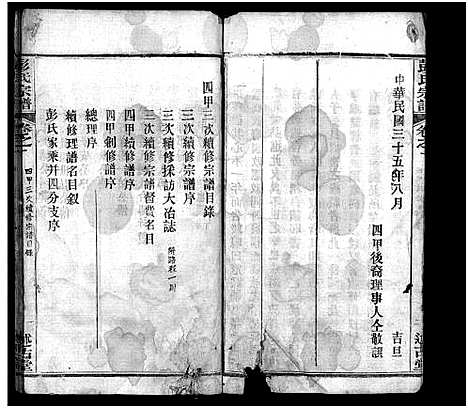 彭氏宗譜
卷之一
中華民國三十五年八月
吉旦
四甲後裔理事人仝敬譔
述古堂
四甲三次續修宗譜目錄
三次續修採訪大冶誌
附路程一則
三次續修宗譜督費名目
四甲續修譜序
四甲創修譜序
總理序
續修理譜名目敘
彭氏家乘并四分支序
彭氏宗譜
卷之一
四甲三次續修宗譜目錄
述古堂